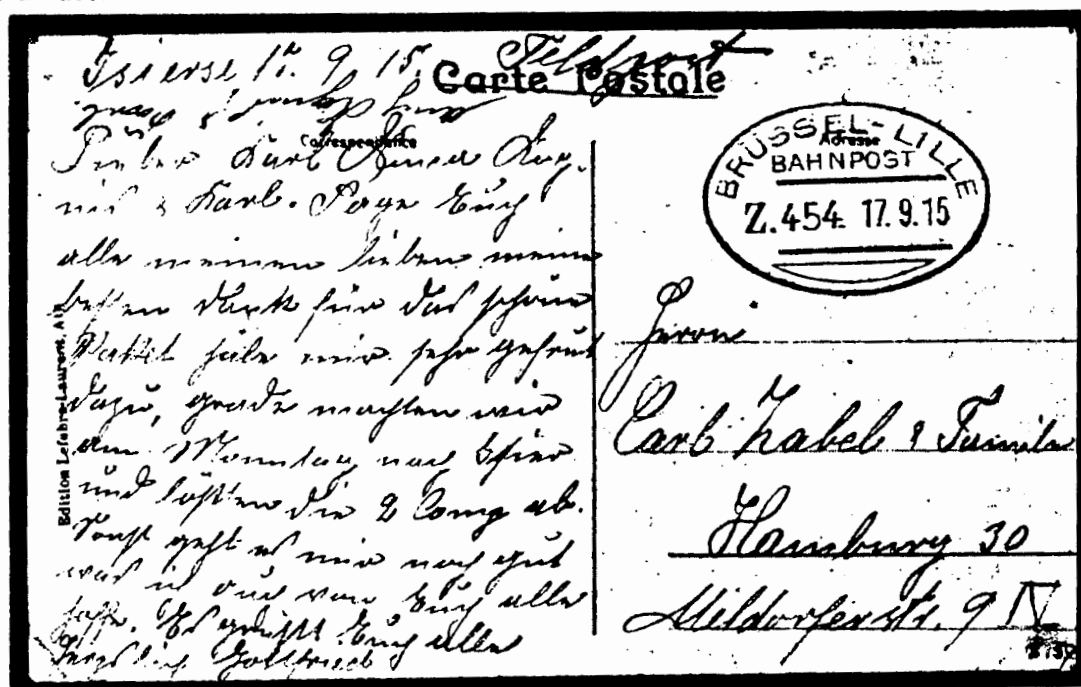 Isierse 17. 9. 15. Feldpost
Carte Postale
Correspondance
Lieber Karl Anna
& Karl. Sage Euch
alle meinen lieben meine
besten Dank für das schöne
Packet habe mir sehr gefreut
dazu, grade machten wir
am Monntag nach
und lösten die 2 Comp ab.
Sonst geht es mir noch gut
was ich auch von Euch alle
hoffe. Es grüßt Euch alle
herzlich Gottfried
Edition Lefebre-Laurent, A
Adresse
BRÜSSEL-LILLE
BAHNPOST
Z.454 17.9.15
Herrn
Carl Zabel & Familie
Hamburg 30
Mildorferstr. 9 IV